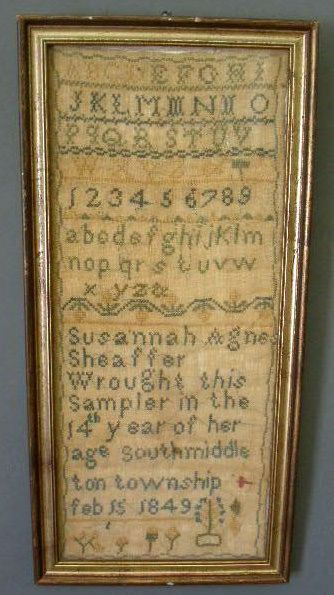 ABCDEFGHI
JKLMNO
PQRSTUV
W
123456789
abcdefghijklm
nopqrstuvw
xyz&
Susannah Agnes
Sheaffer
Wrought this
Sampler in the
14th year of her
age Southmiddle
ton township
feb 15 1849